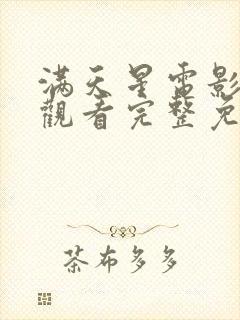 满天星电影
觀看完整免
茶布多多